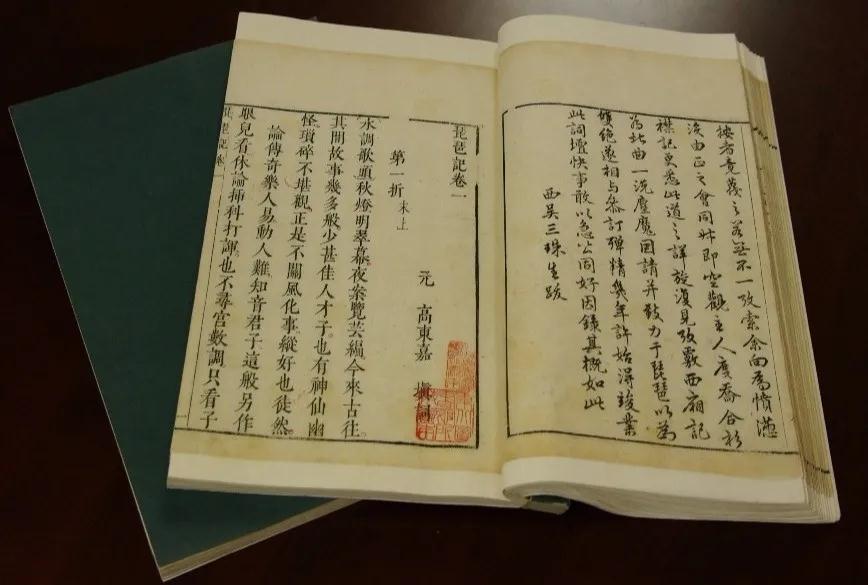 按者竟蔑之若無不一攷索余向為憤懣
後由正之會同叔即空觀主人度喬合衫
襟記更悉此道之詳旋復見攷覈西廂記
為北曲一洗塵魔因請并致力于琵琶以為
雙絕遂相與參訂殫精幾年許始得竣業
此詞壇快事敢以急公同好因錄其概如此
西吳三珠生跋
琵琶記卷一
元 高東嘉 填詞
第一折 末上
水調歌頭秋燈明翠幕夜案覽芸編今來古往
其間故事幾多般少甚佳人才子也有神仙幽
怪瑣碎不堪觀正是不關風化事縱好也徒然
論傳奇樂人易動人難知音君子這般另作
眼兒看休論插科打諢也不尋宮數調只看子